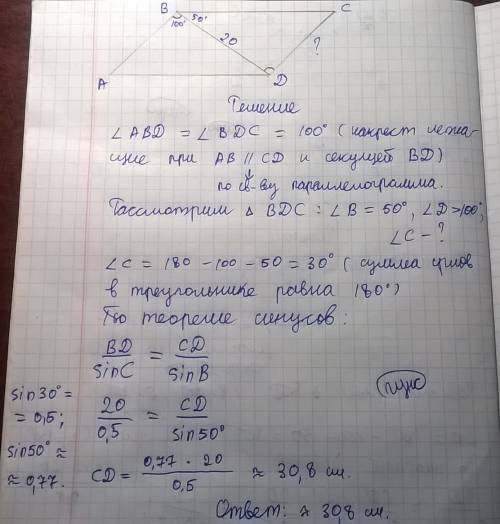 B C
100° 50°
20
?
A D
Решение
∠ABD = ∠BDC = 100° (накрест лежа-
щие при AB || CD и секущей BD)
↓
по св-ву параллелограмма.
Рассмотрим △ BDC : ∠B = 50°, ∠D = 100°,
∠C - ?
∠C = 180 - 100 - 50 = 30° (сумма углов
в треугольнике равна 180°)
По теореме синусов :
BD/sinC = CD/sinB
sin30° =
= 0,5;
20/0,5 = CD/sin50°
sin50° ≈
≈ 0,77.
CD = 0,77 · 20/0,5 ≈ 30,8 см.
Ответ: ≈ 30,8 см.